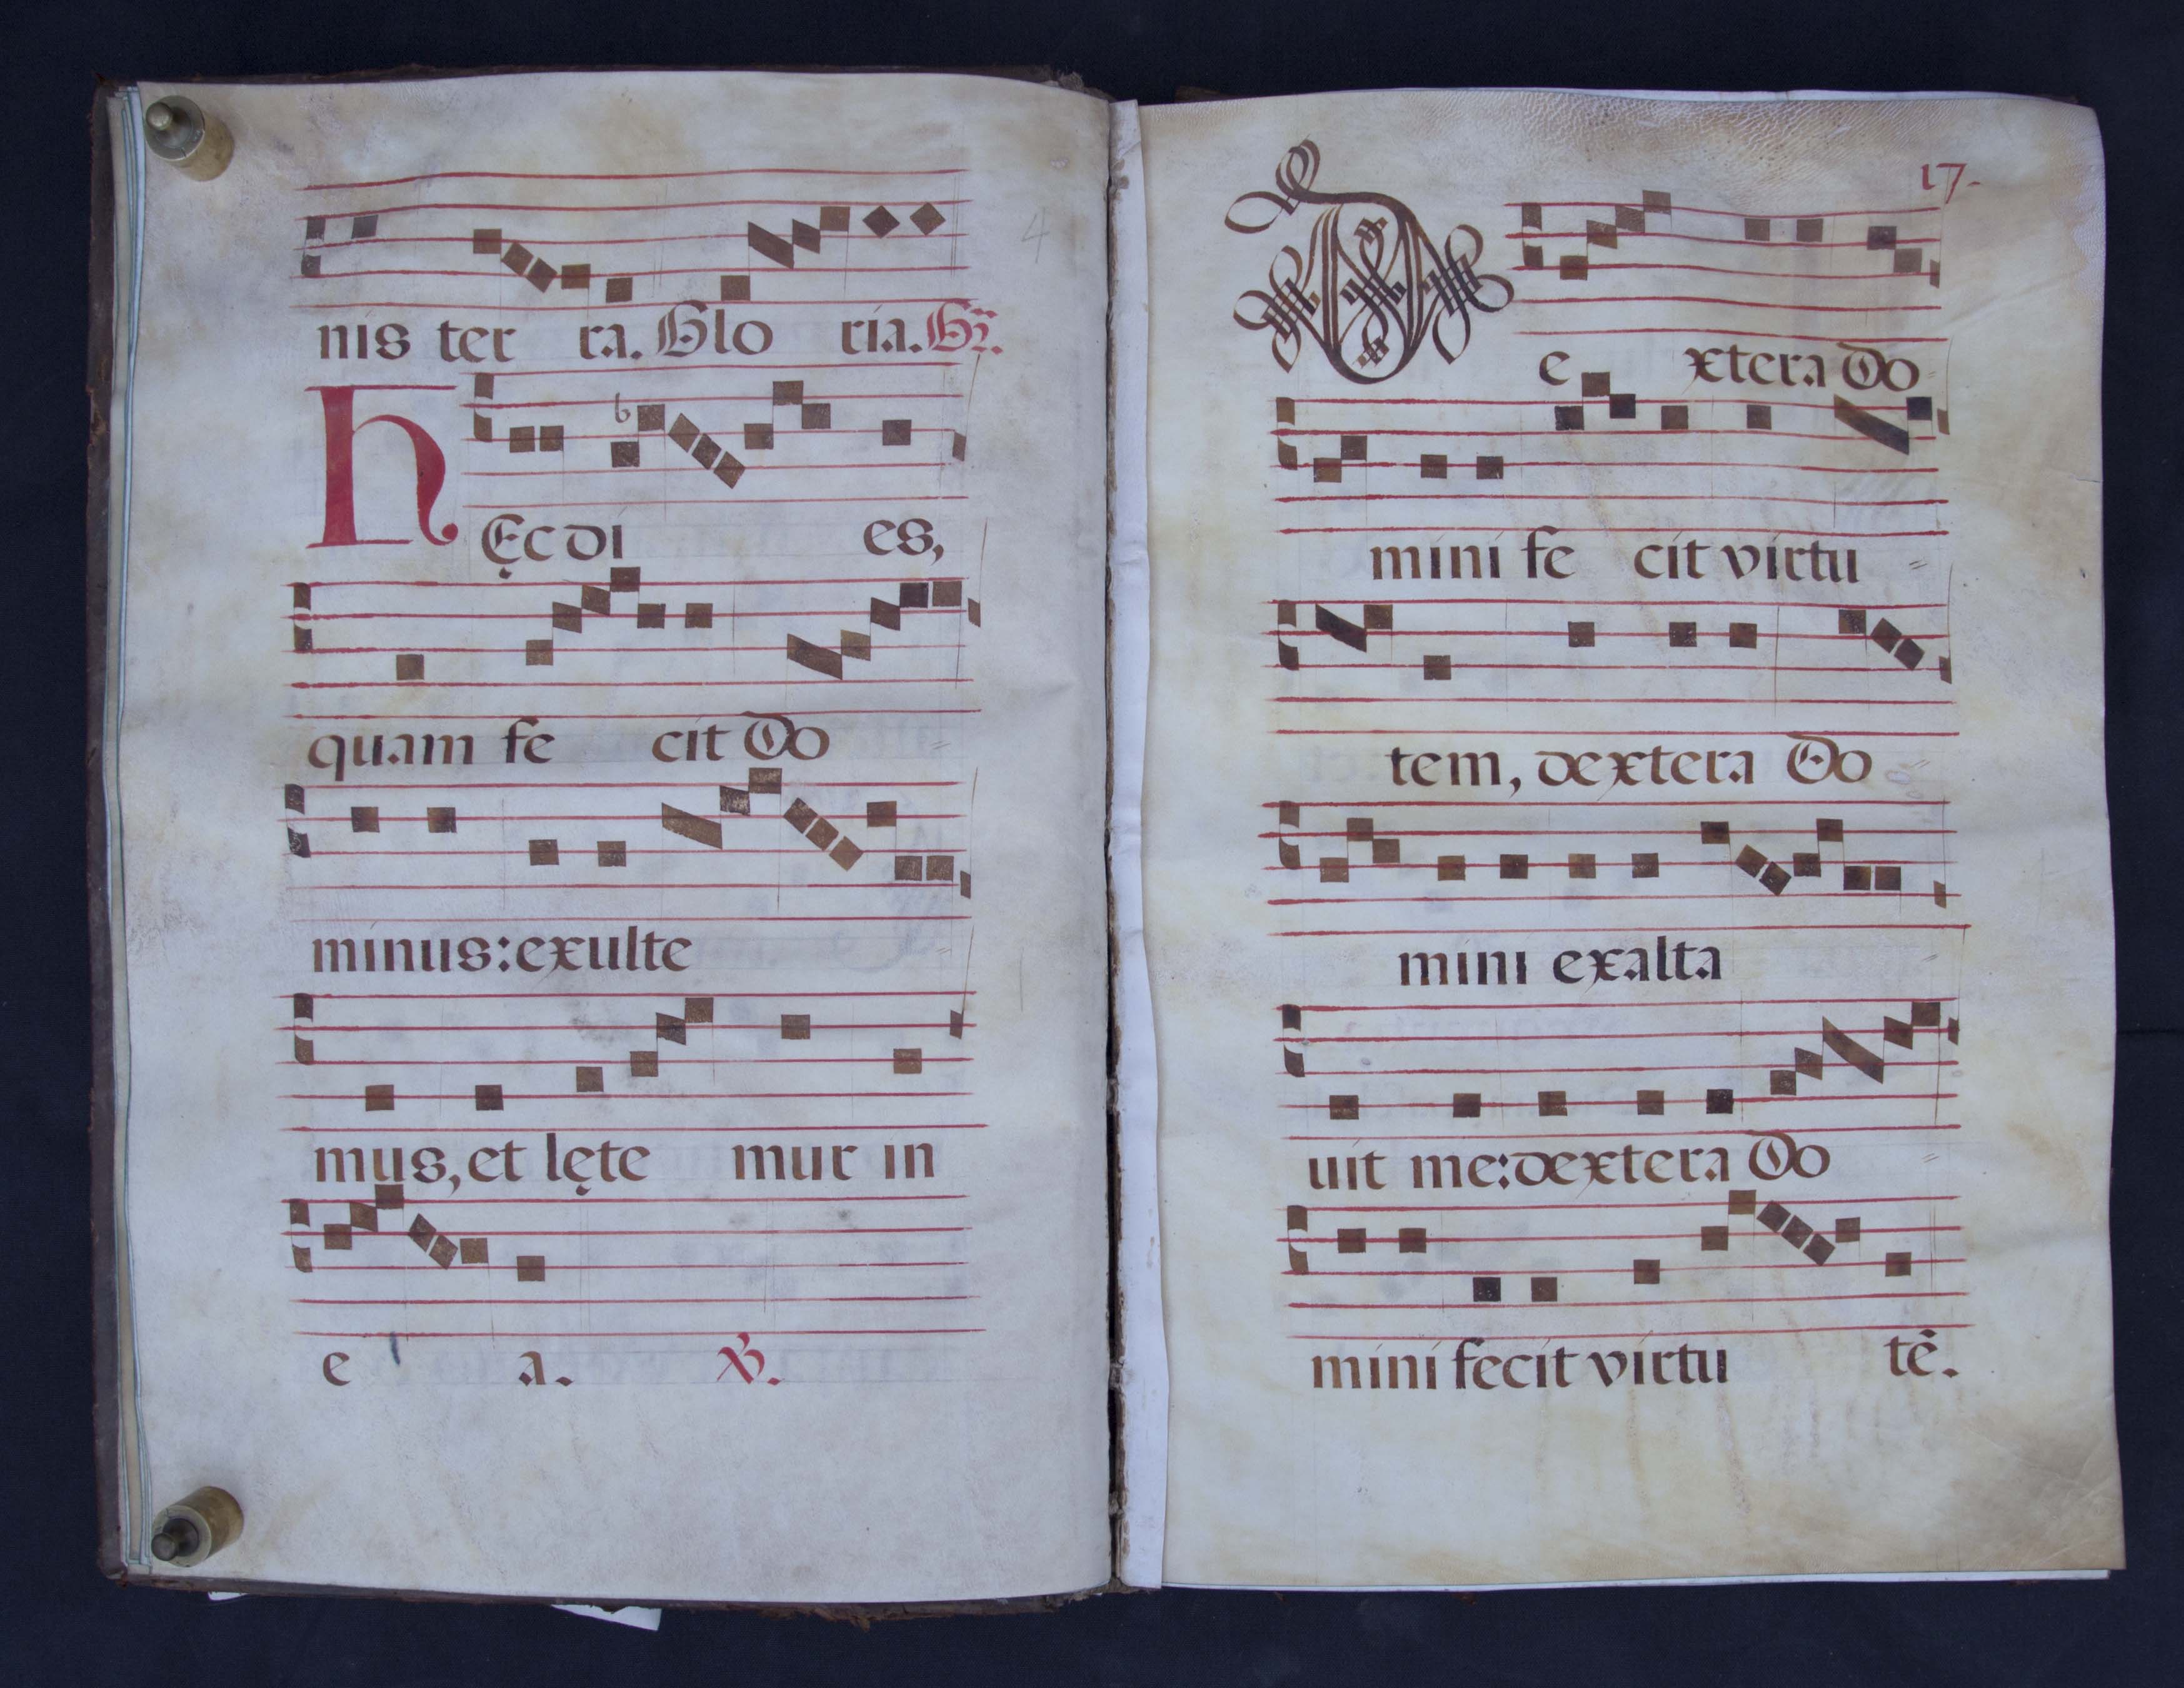 nis ter ra. Glo ria. Gr̃.
b
hĘc di es,
quam fe cit Do =
minus: exulte =
mus, et lęte mur in
e a. ℣.
4
17.
De xtera Do =
mini fe cit virtu =
tem, dextera Do =
mini exalta =
uit me: dextera Do =
mini fecit virtu tẽ.